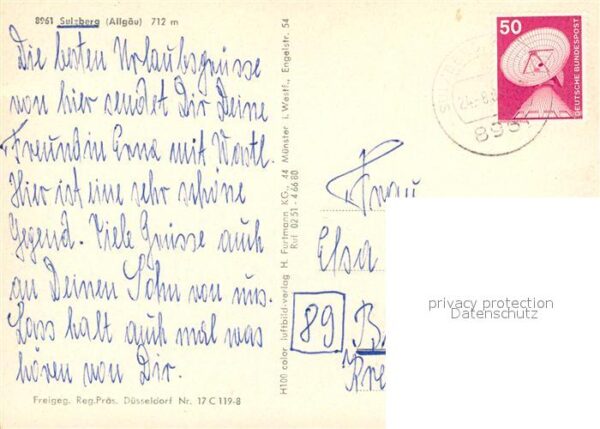 8961 Sulzberg (Allgäu) 712 m
Die besten Urlaubsgrüsse
von hier sendet Dir Deine
Freundin Erna mit Wastl.
Hier ist eine sehr schöne
Gegend. Viele Grüsse auch
an Deinen Sohn von uns.
Lass halt auch mal was
hören von Dir.
Freigeg. Reg.Präs. Düsseldorf Nr. 17 C 119-8
H100 color luftbild-verlag H. Furtmann KG., 44 Münster i. Westf., Engelstr. 54
Ruf: 02 51 - 4 66 80
50
DEUTSCHE BUNDESPOST
8961
Frau
Elsa
89
B
privacy protection
Datenschutz